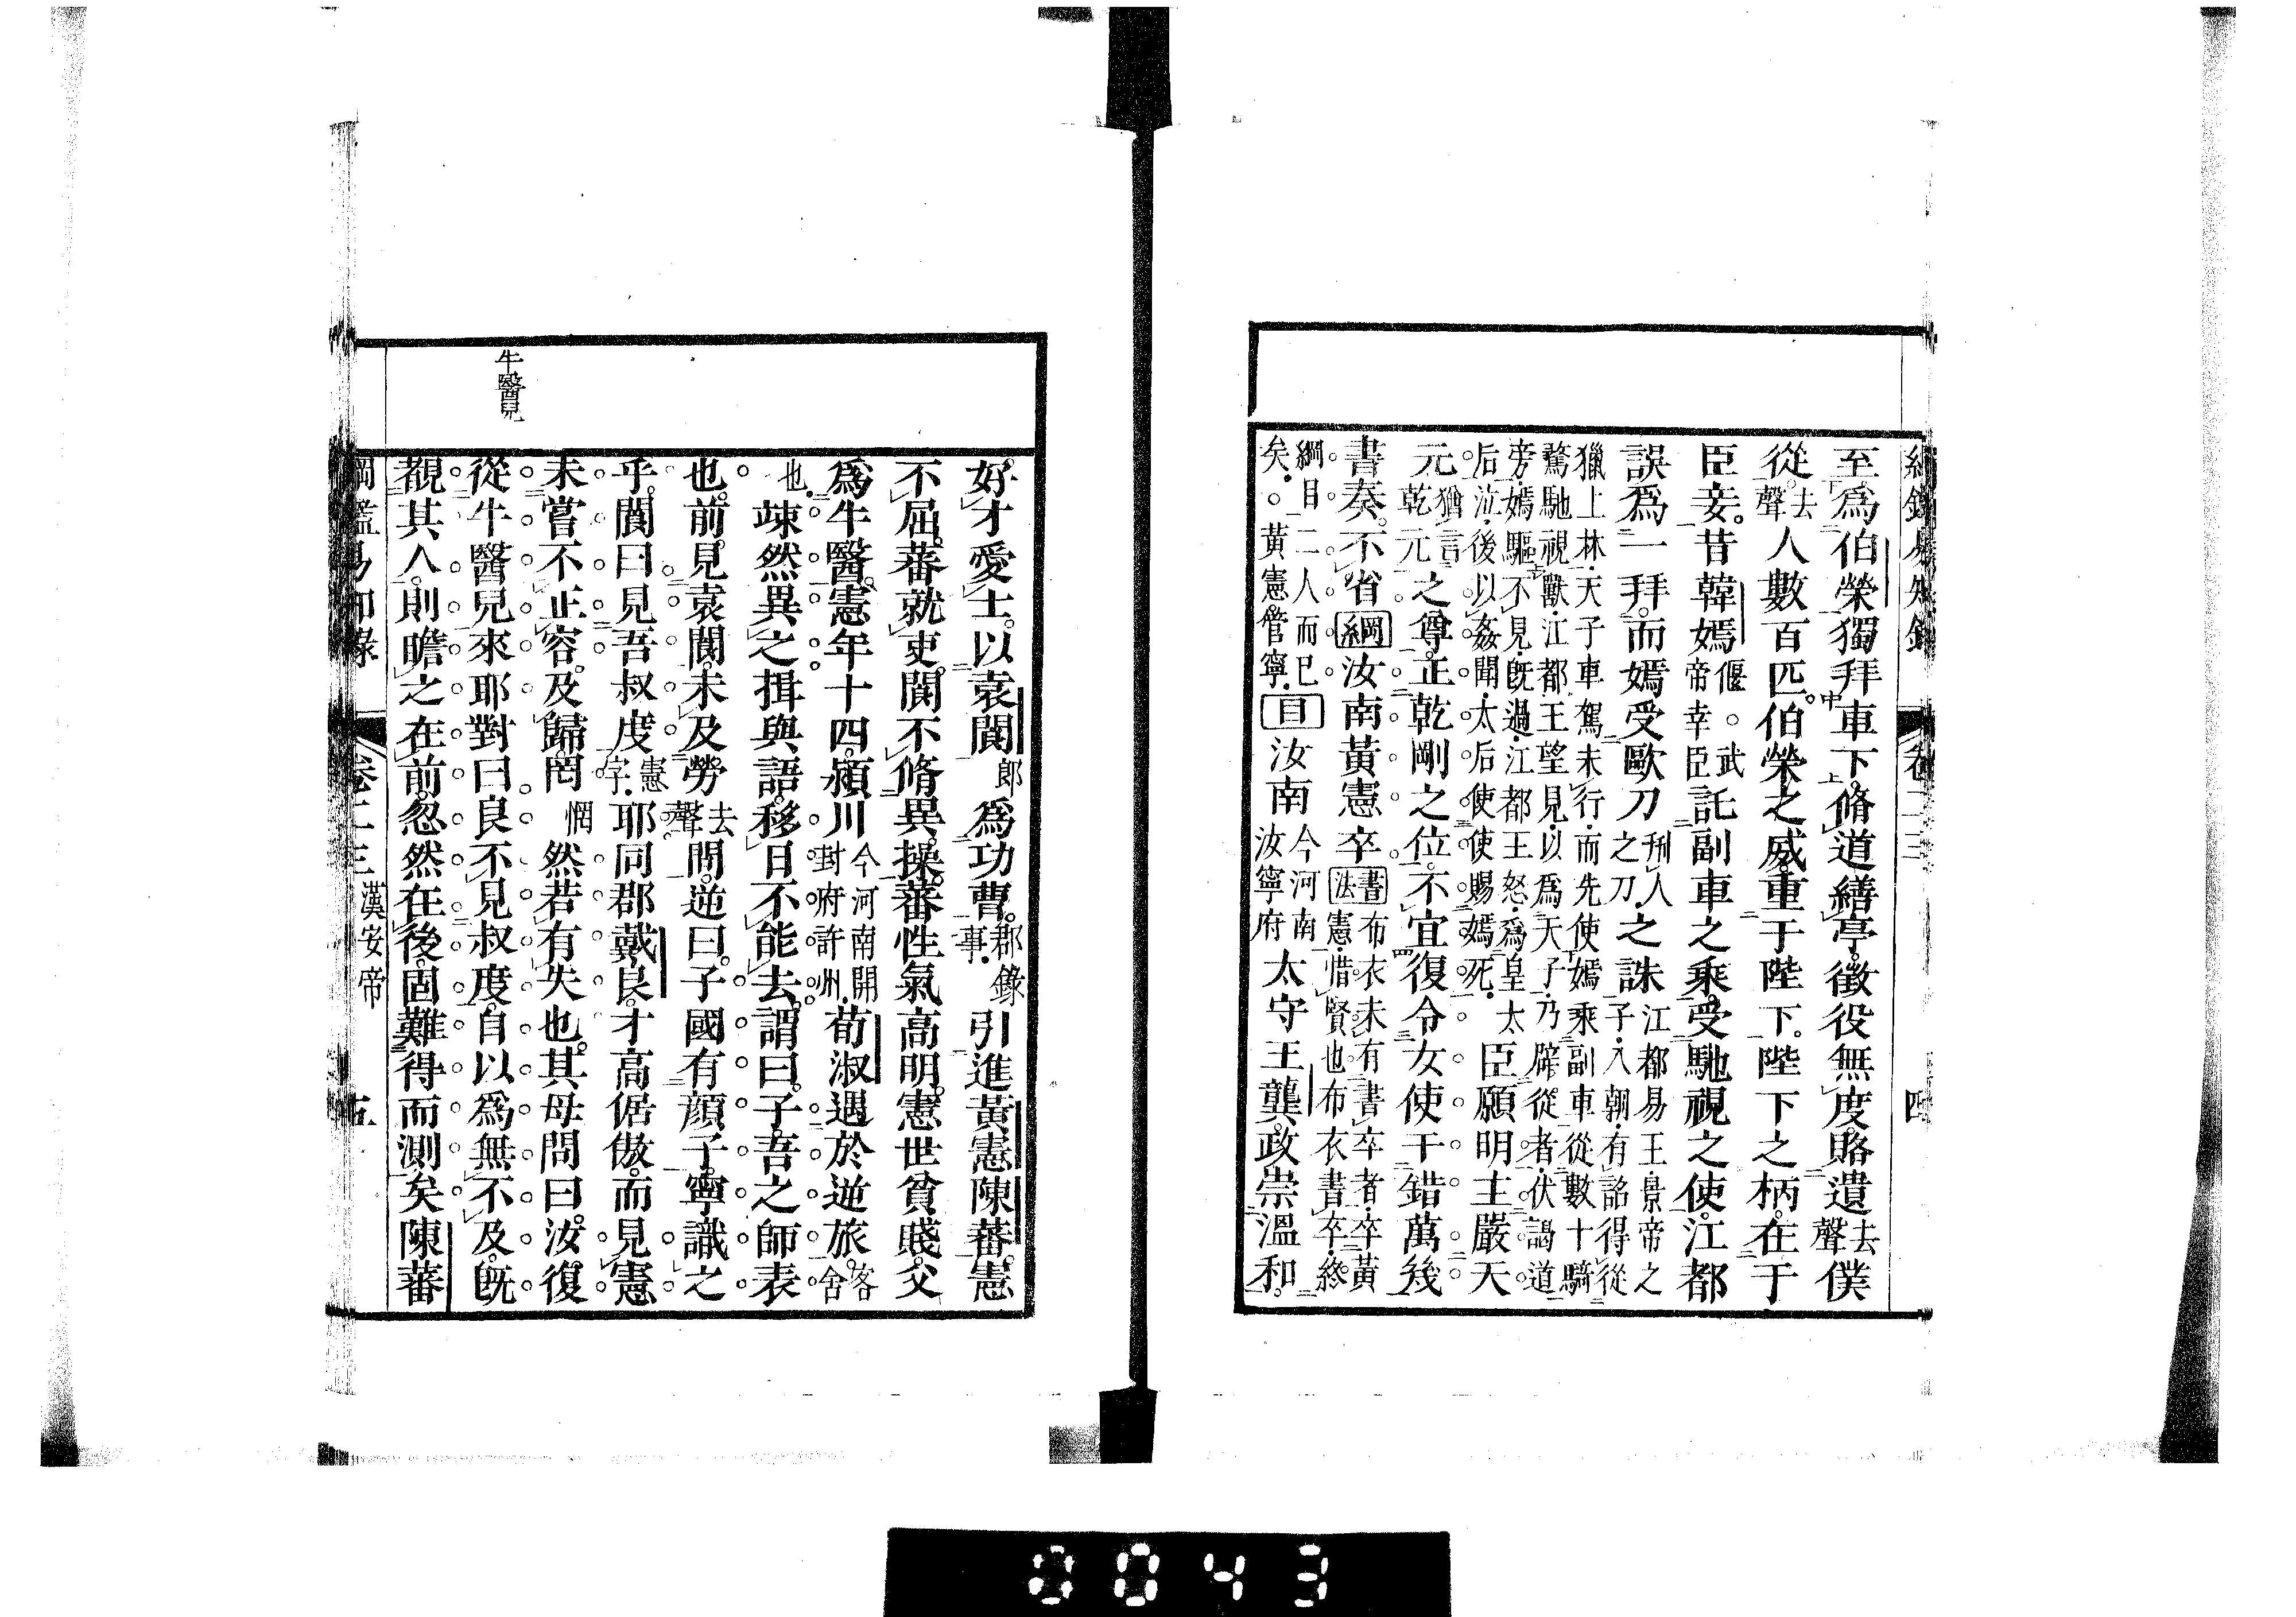 綱鑑易知錄 卷二三 四
至。爲伯榮獨拜車下。脩道繕亭。徵役無度。賂遺去聲僕
從去聲人數百匹。伯榮之威。重于陛下。陛下之柄。在于
臣妾。昔韓嫣偃。○武帝幸臣託副車之乘。受馳視之使。江都
誤爲一拜。而嫣受歐刀刑人之刀。之誅江都易王。景帝之子。入朝。有詔得從
獵上林。天子車駕未行。而先使嫣乘副車。從數十騎
驁馳視獸。江都王望見。以爲天子。乃辟從者。伏謁道
旁。嫣驅不見。旣過。江都王怒。爲皇太
后泣。後以姦聞。太后使使賜嫣死。臣願明主嚴天
元猶言乾元之尊。正乾剛之位。不宜復令女使干錯萬幾
書奏。不省綱汝南黃憲卒書法布衣未有書卒者。卒黃憲。惜賢也。布衣書卒。終
綱目二人而已矣。○黃憲。管寧。目汝南今河南汝寧府太守王龔。政崇溫和。
好才愛士。以袁閬郎爲功曹。郡錄事。引進黃憲陳蕃。憲
不屈。蕃就吏。閬不脩異操。蕃性氣高明。憲世貧賤。父
爲牛醫。憲年十四。潁川今河南開封府許州。荀淑遇於逆旅。客舍
也。竦然異之。揖與語。移日不能去。謂曰。子。吾之師表
也。前。見袁閬。未及勞去聲問。逆曰。子國有顔子。寧識之
乎。閬曰。見吾叔度憲字。耶。同郡戴良。才高倨傲。而見憲
未嘗不正容。及歸。罔惘然若有失也。其母問曰。汝復
從牛醫兒來耶。對曰。良不見叔度。自以爲無不及。旣
覩其人。則瞻之在前。忽然在後。固難得而測矣。陳蕃
牛醫兒
綱鑑易知錄 卷二三 漢安帝 五
0043